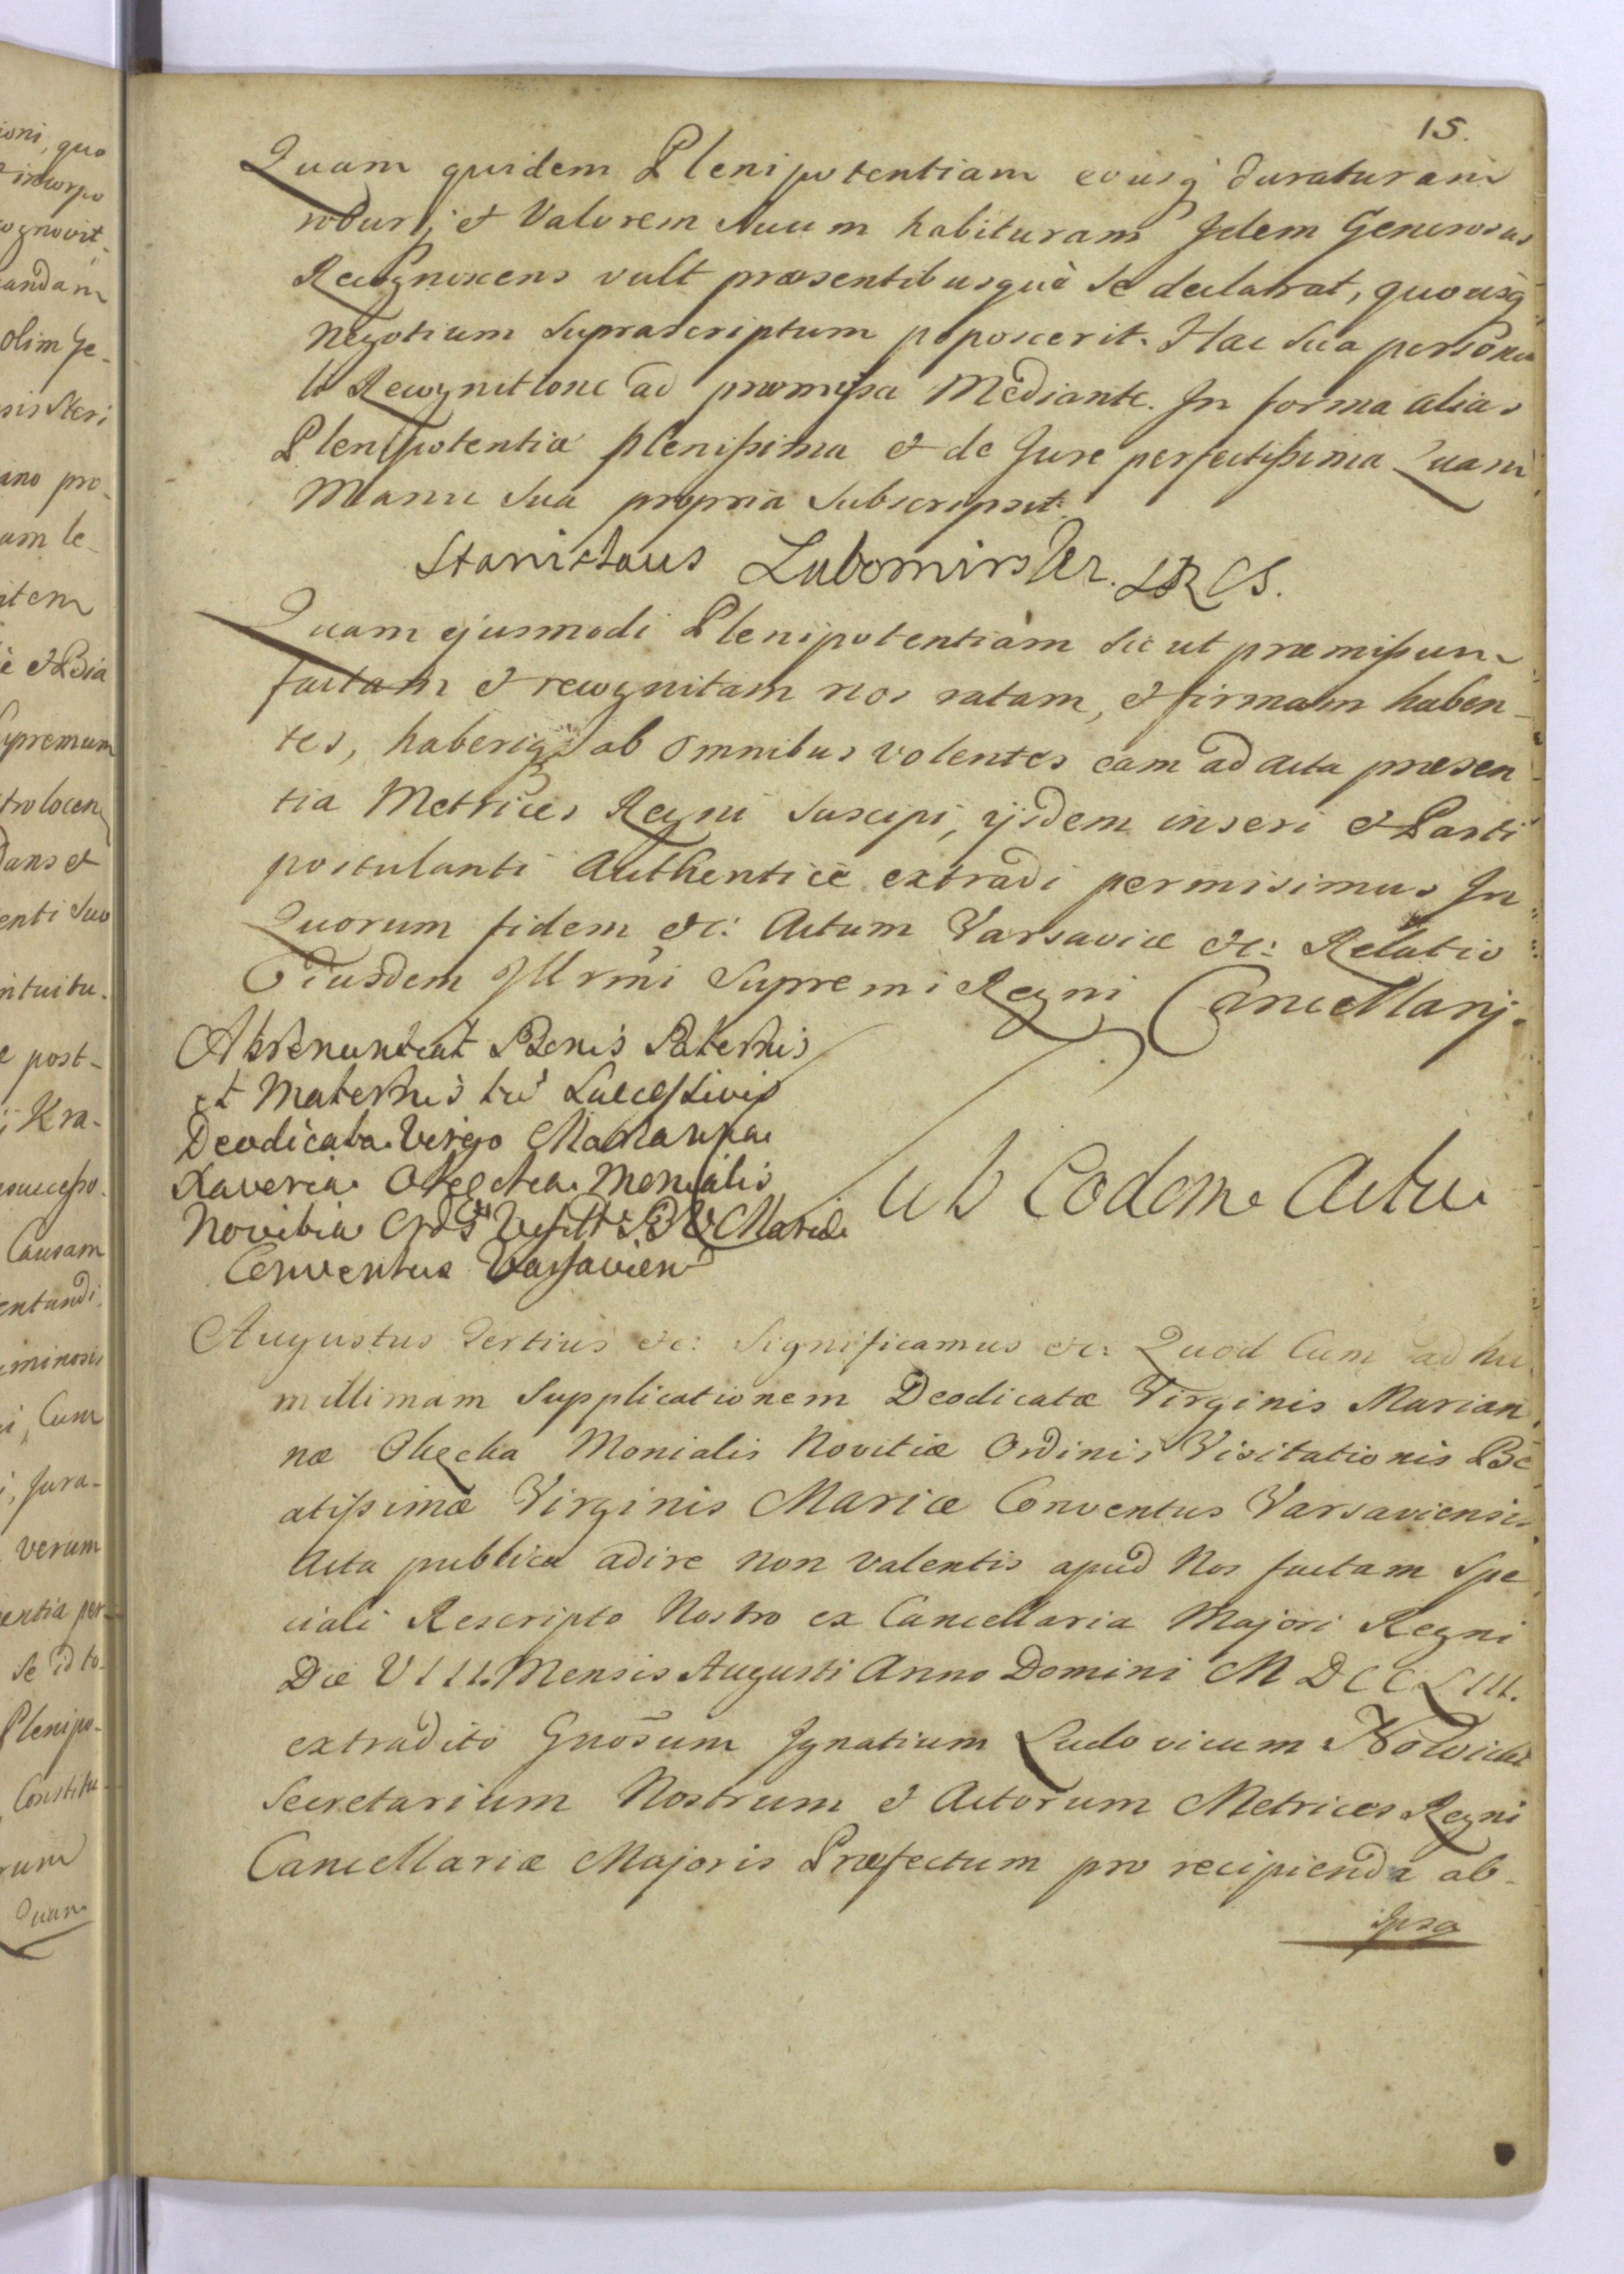 15.
Quam quidem Plenipotentiam eousq̃ duraturam
roburq̃ et Valorem suum habituram Idem Generosus
Recognoscens vult præsentibusquè se declarat, quousq̃
negotium suprascriptum poposcerit. Hac sua persona
li Recognitione ad præmissa Mediante. In forma alias
Plenipotentiæ plenissima et de Jure perfectissima Quam
Manu sua propria subscripsit.
Stanislaus Lubomirski.
Quam ejusmodi Plenipotentiam sic ut præmissum
factam et recognitam nos ratam, et firmam haben-
tes, haberiq̃ ab omnibus volentes eam ad acta præsen
tia Metrices Regni suscipi, ijsdem inseri et Parti
postulanti Authenticè extradi permisimus In
Quorum fidem etc: Actum Varsaviæ etc: Relatio
Eiusdem Illrmi Supremi Regni Cancellarij.
Abrenuntiat Bonis Paternis
et Maternis Successivis
Deodicata Virgo Marianna
Xaveria Olęcka Monialis
Novitia Ords Visitts B V Mariæ
Conventus Varsavien
Ut Eodem Actu
Augustus Tertius etc: Significamus etc: Quod Cum ad hu
millimam Supplicationem Deodicatæ Virginis Marian
næ Olęcka Monialis Novitiæ Ordinis Visitationis Be
atissimæ Virginis Mariæ Conventus Varsaviensis
Acta publica adire non valentis apud Nos factam Spe
ciali Rescripto Nostro ex Cancellaria Majori Regni
Die VIII. Mensis Augusti Anno Domini MDCCLIII.
extradito Gnosum Ignatium Ludovicum
Secretarium Nostrum et Actorum Metrices Regni
Cancellariæ Majoris Præfectum pro recipienda ab-
Ipsa